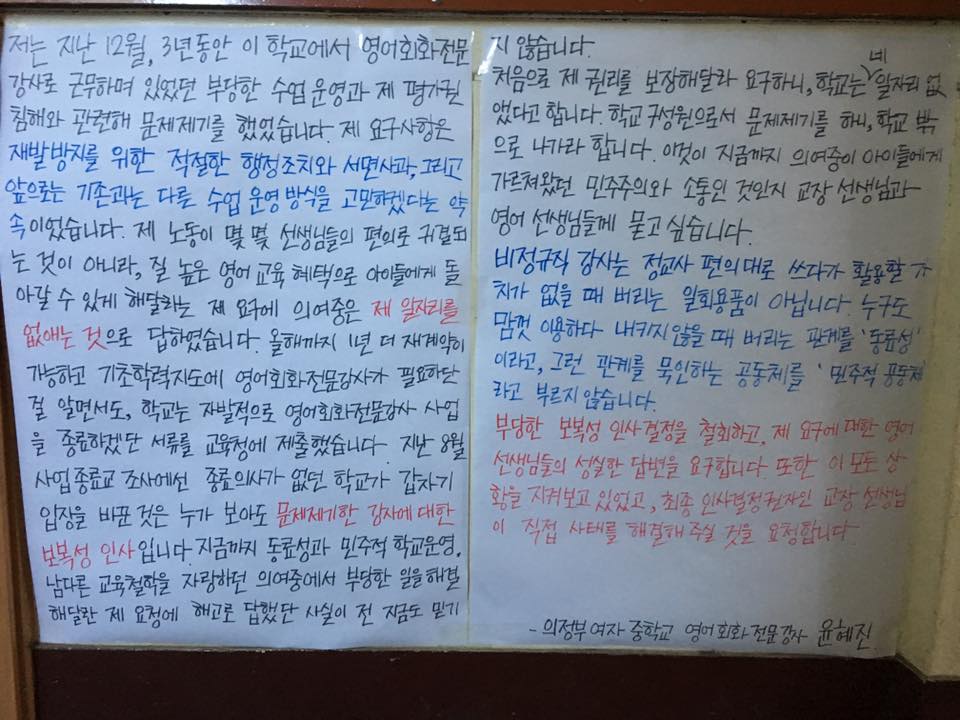 저는 지난 12월, 3년동안 이 학교에서 영어회화전문
강사로 근무하며 있었던 부당한 수업 운영과 제 평가권
침해와 관련해 문제제기를 했었습니다. 제 요구사항은
재발방지를 위한 적절한 행정조치와 서면사과, 그리고
앞으로는 기존과는 다른 수업 운영 방식을 고민하겠다는 약
속이었습니다. 제 노동이 몇 몇 선생님들의 편의로 귀결되
는 것이 아니라, 질 높은 영어 교육 혜택으로 아이들에게 돌
아갈 수 있게 해달라는 제 요구에 의여중은 제 일자리를
없애는 것으로 답하였습니다. 올해까지 1년 더 재계약이
가능하고 기초학력지도에 영어회화전문강사가 필요하단
걸 알면서도, 학교는 자발적으로 영어회화전문강사 사업
을 종료하겠단 서류를 교육청에 제출했습니다. 지난 8월
사업종료교 조사에선 종료의사가 없던 학교가 갑자기
입장을 바꾼 것은 누가 보아도 문제제기한 강사에 대한
보복성 인사입니다. 지금까지 동료성과 민주적 학교운영,
남다른 교육철학을 자랑하던 의여중에서 부당한 일을 해결
해달란 제 요청에 해고로 답했단 사실이 전 지금도 믿기
지 않습니다.
처음으로 제 권리를 보장해달라 요구하니, 학교는 네 일자리 없
앴다고 합니다. 학교구성원으로서 문제제기를 하니, 학교 밖
으로 나가라 합니다. 이것이 지금까지 의여중이 아이들에게
가르쳐왔던 민주주의와 소통인 것인지 교장 선생님과
영어 선생님들께 묻고 싶습니다.
비정규직 강사는 정교사 편의대로 쓰다가 활용할 가
치가 없을 때 버리는 일회용품이 아닙니다. 누구도
맘껏 이용하다 내키지 않을 때 버리는 관계를 '동료성'
이라고, 그런 관계를 묵인하는 공동체를 '민주적 공동체'
라고 부르지 않습니다.
부당한 보복성 인사결정을 철회하고, 제 요구에 대한 영어
선생님들의 성실한 답변을 요구합니다. 또한 이 모든 상
황을 지켜보고 있었고, 최종 인사결정권자인 교장 선생님
이 직접 사태를 해결해 주실 것을 요청합니다.
- 의정부여자중학교 영어회화전문강사 윤혜진